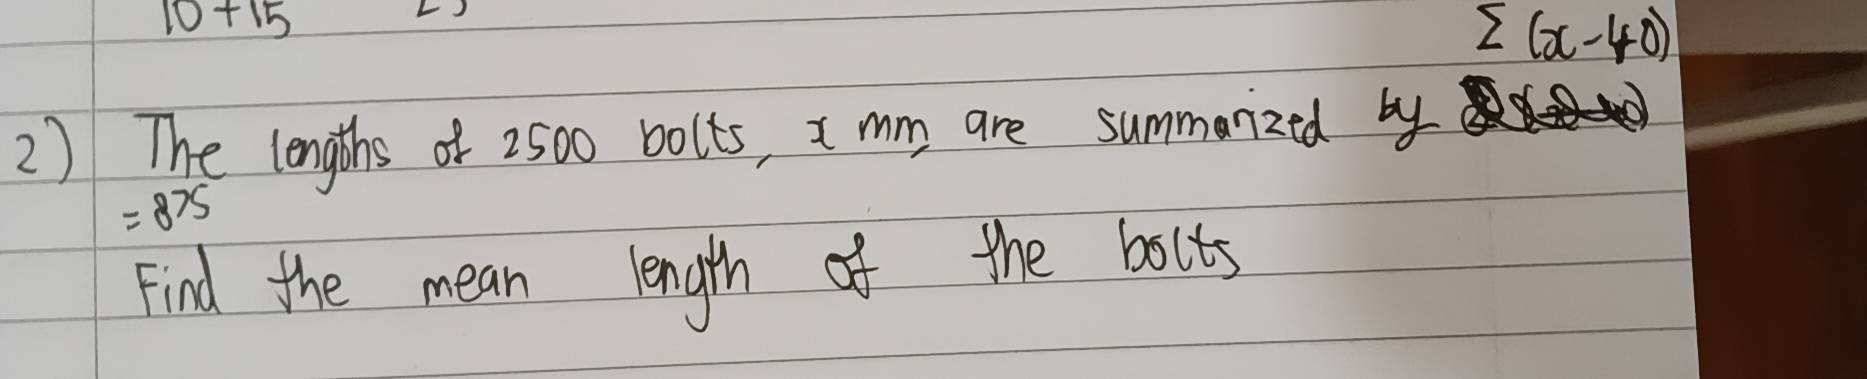 10+15
Σ (x-40)
2) The lengths of 2500 bolts, x mm, are summarized by
=875
Find the mean length of the bolts